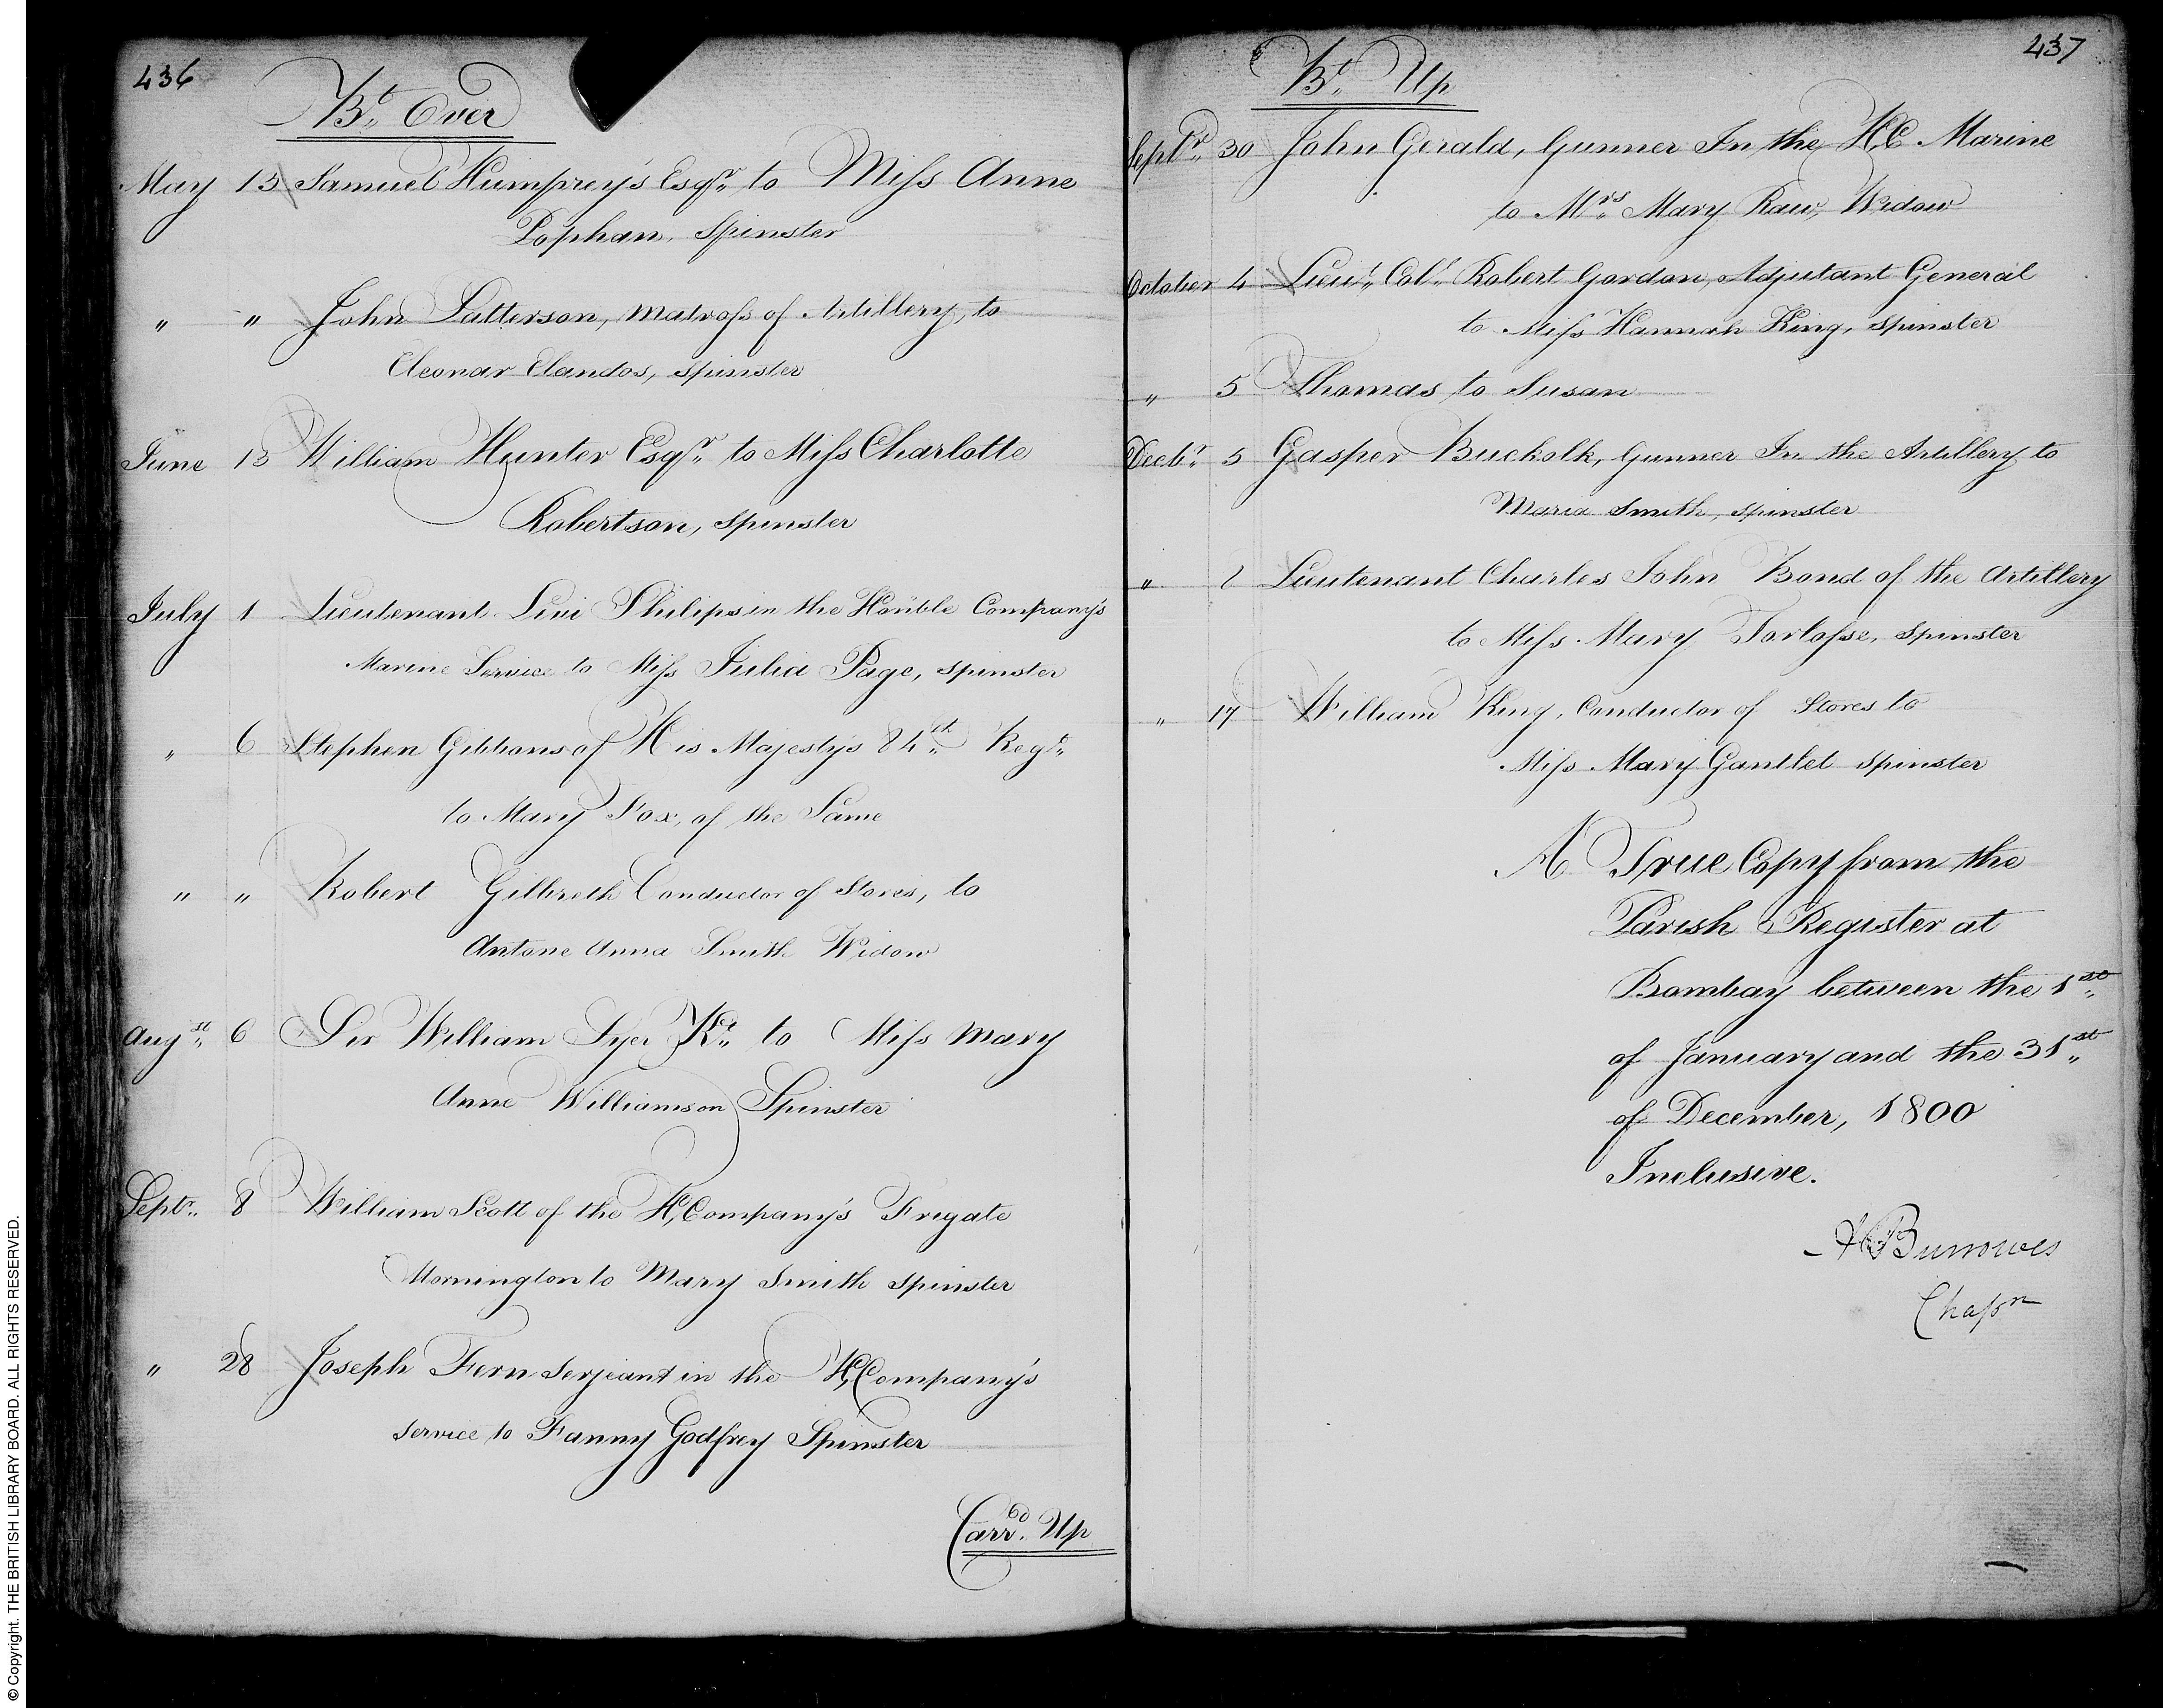 436
Bt. Over
May 15 Samuel Humprey's Esqr. to Miss Anne
Pophan, Spinster
" " John Patterson, Matross of Artillery, to
Eleonar Elandos, spinster
June 13 William Hunter Esqr. to Miss Charlotte
Robertson, Spinster
July 1 Lieutenant Livi Philips in the Honble Company's
Marine Service to Miss Julia Page, spinster
" 6 Stephen Gibbons of His Majesty's 84th Regt.
to Mary Fox, of the Same
" " Robert Gilbreth Conductor of Stores, to
Antone Anna Smith Widow
Augst. 6 Sir William Syer Kt. to Miss Mary
Anne Williamson Spinster
Septr. 8 William Scott of the H. Company's Frigate
Mornington to Mary Smith Spinster
" 28 Joseph Fern Serjeant in the H. Company's
service to Fanny Godfrey Spinster
Carrd. Up
437
Bt. Up
Septr. 30 John Gerald, Gunner In the H,C Marine
to Mrs. Mary Raw, Widow
October 4 Lieut. Coll. Robert Gordon, Adjutant General
to Miss Hannah King, spinster
" 5 Thomas to Susan
Decbr. 5 Gasper Buckolk, Gunner In the Artillery to
Maria Smith, spinster
" Lieutenant Charles John Bond of the Artillery
to Miss Mary Torlosse, Spinster
" 17 William King, Conductor of Stores to
Miss Mary Gantlet Spinster
A True Copy from the
Parish Register at
Bombay between the 1st.
of January and the 31st.
of December, 1800
Inclusive.
Burrowes
Chapn
© Copyright. THE BRITISH LIBRARY BOARD. ALL RIGHTS RESERVED.